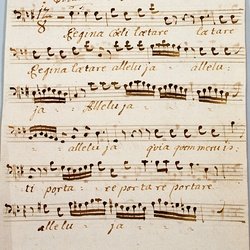 Regina cæli lætare lætare
Regina lætare alleluja alle
ja Alleluja
alleluja quia quem meruis
ti portare portare portare
alleluja